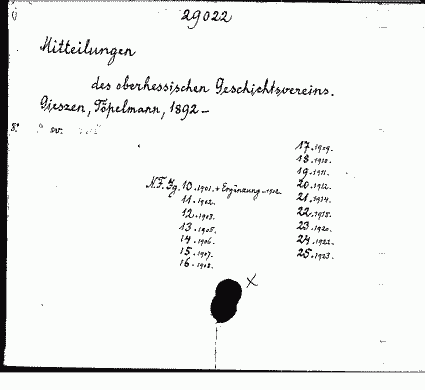 29022
Mitteilungen
des oberhessischen Geschichtsvereins.
Gieszen, Töpelmann, 1892 —
8°
N.F. Jg. 10. 1901. + Ergänzung - 1902.
11. 1902.
12. 1903.
13. 1905.
14. 1906.
15. 1907.
16. 1908.
17. 1909.
18. 1910.
19. 1911.
20. 1912.
21. 1914.
22. 1915.
23. 1920.
24. 1922.
25. 1923.
X